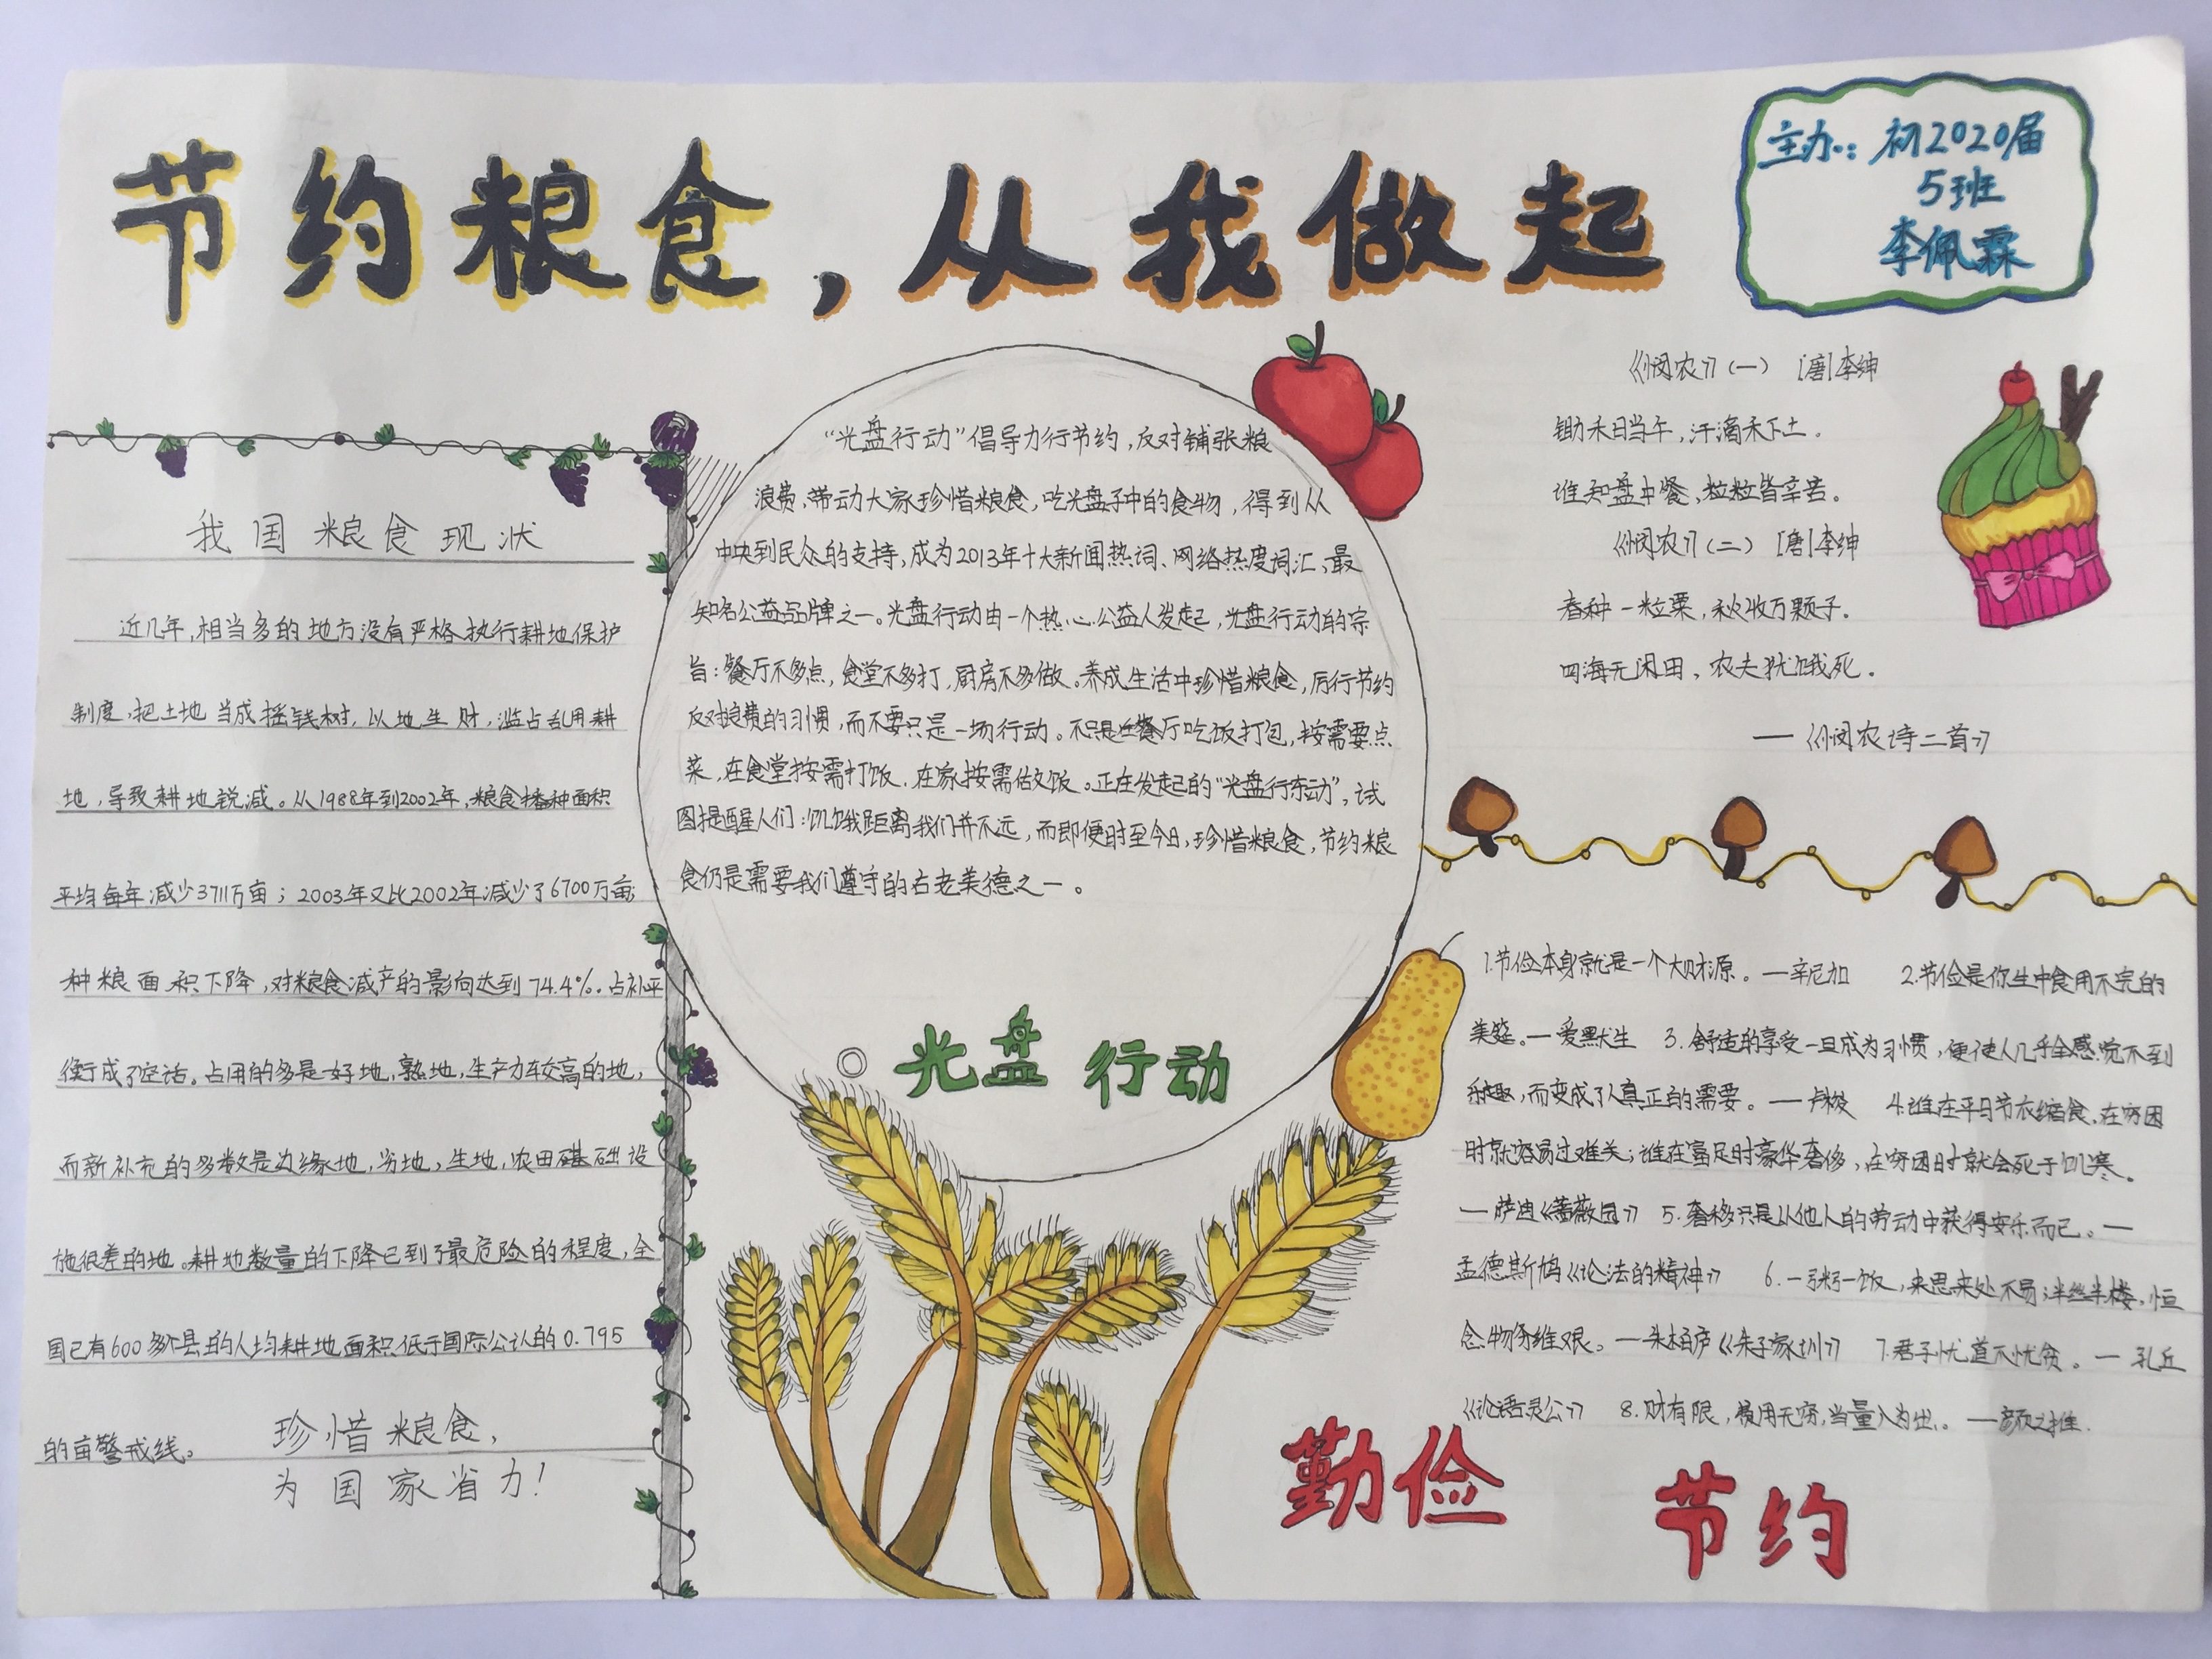 节约粮食，从我做起
主办：初2020届
5班
李佩霖
我国粮食现状
近几年，相当多的地方没有严格执行耕地保护
制度，把土地当成摇钱树，以地生财，滥占乱用耕
地，导致耕地锐减。从1988年到2002年，粮食播种面积
平均每年减少3711万亩；2003年又比2002年减少了6700万亩；
种粮面积下降，对粮食减产的影向达到74.4%。占补平
衡成了空话。占用的多是好地，熟地，生产力较高的地，
而新补充的多数是边缘地，劣地，生地，农田基础设
施很差的地。耕地数量的下降已到了最危险的程度，全
国已有600多个县的人均耕地面积低于国际公认的0.795
的亩警戒线。
珍惜粮食，
为国家省力！
“光盘行动”倡导力行节约，反对铺张粮
浪费，带动大家珍惜粮食，吃光盘子中的食物，得到从
中央到民众的支持，成为2013年十大新闻热词、网络热度词汇，最
知名公益品牌之一。光盘行动由一个热心公益人发起，光盘行动的宗
旨：餐厅不多点，食堂不多打，厨房不多做。养成生活中珍惜粮食，厉行节约
反对浪费的习惯，而不要只是一场行动。不只是在餐厅吃饭打包，按需要点
菜，在食堂按需打饭，在家按需做饭。正在发起的“光盘行动”，试
图提醒人们：饥饿距离我们并不远，而即便时至今日，珍惜粮食，节约粮
食仍是需要我们遵守的古老美德之一。
光盘行动
《悯农》（一） [唐]李绅
锄禾日当午，汗滴禾下土。
谁知盘中餐，粒粒皆辛苦。
《悯农》（二） [唐]李绅
春种一粒粟，秋收万颗子。
四海无闲田，农夫犹饿死。
—《悯农诗二首》
1.节俭本身就是一个大财源。—辛尼加 2.节俭是你生中食用不完的
美筵。—爱默生 3.舒适的享受一旦成为习惯，便使人几乎全感觉不到
乐趣，而变成了人真正的需要。—卢梭 4.谁在平日节衣缩食，在穷困
时就容易过难关；谁在富足时豪华奢侈，在穷困时就会死于饥寒。
—萨迪《蔷薇园》 5.奢侈只是从他人的劳动中获得安乐而已。—
孟德斯鸠《论法的精神》 6.一粥一饭，来思来处不易；半丝半缕，恒
念物力维艰。—朱柏庐《朱子家训》 7.君子忧道不忧贫。— 孔丘
《论语灵公》 8.财有限，费用无穷，当量入为出。—颜之推.
勤俭 节约